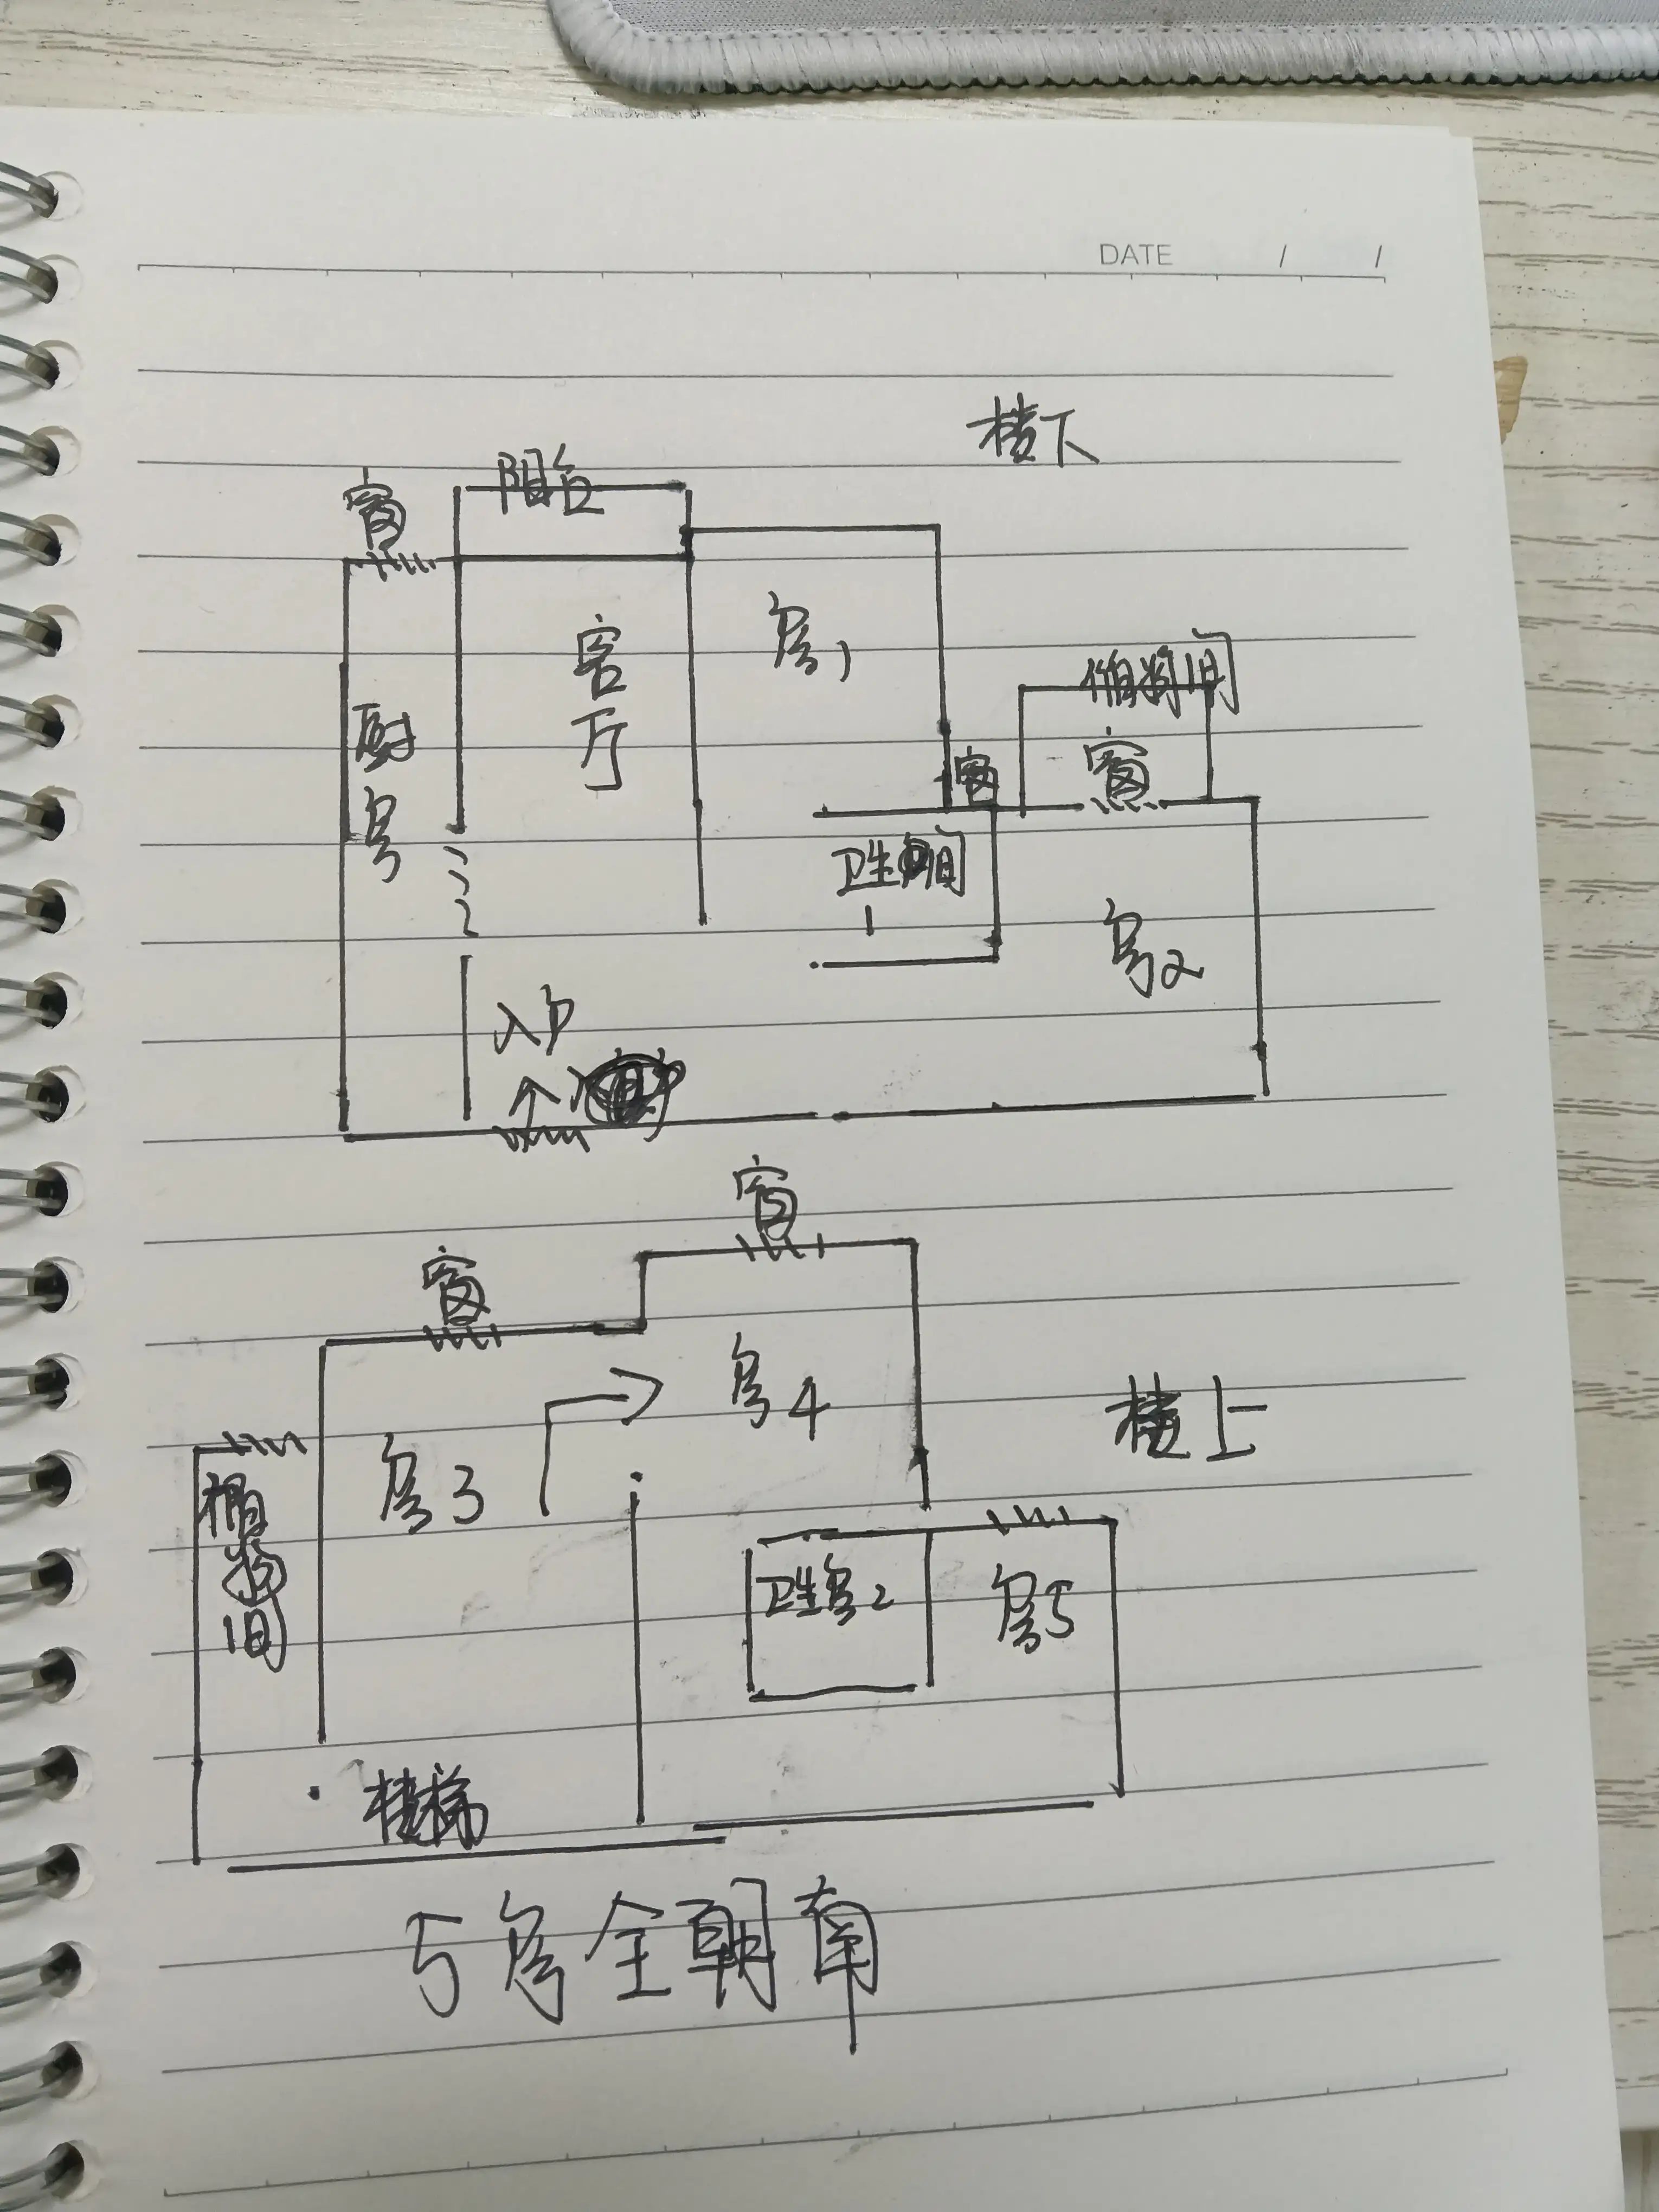 DATE / /
楼下
阳台
窗
客厅
房1
储物间
窗
窗
厨房
卫生间
1
房2
入户
窗
窗
房4
楼上
房3
储物间
卫生房2
房5
楼梯
5房全朝南